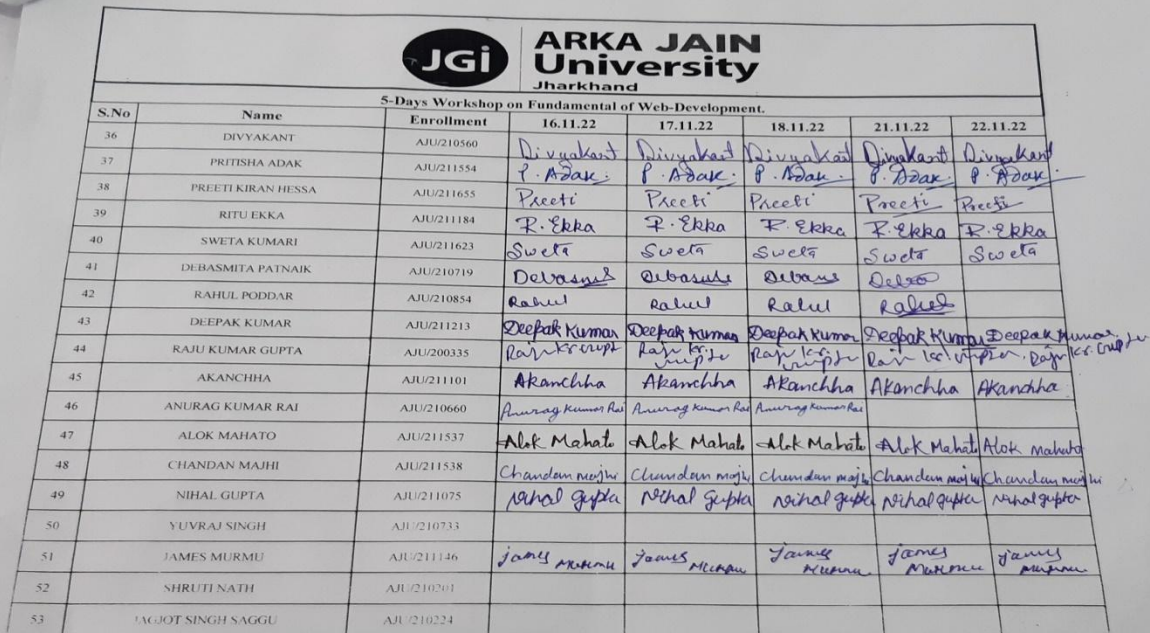 JGi ARKA JAIN
University
Jharkhand
5-Days Workshop on Fundamental of Web-Development.
S.No Name Enrollment 16.11.22 17.11.22 18.11.22 21.11.22 22.11.22
36 DIVYAKANT AJU/210560 Divyakant Divyakant Divyakant Divyakant Divyakant
37 PRITISHA ADAK AJU/211554 P. Adak. P. Adak. P. Adak. P. Adak. P. Adak.
38 PREETI KIRAN HESSA AJU/211655 Preeti Preeti Preeti Preeti Preeti
39 RITU EKKA AJU/211184 R. Ekka R. Ekka R. Ekka R. Ekka R. Ekka
40 SWETA KUMARI AJU/211623 Sweta Sweta Sweta Sweta Sweta
41 DEBASMITA PATNAIK AJU/210719
42 RAHUL PODDAR AJU/210854 Rahul Rahul Rahul Rahul
43 DEEPAK KUMAR AJU/211213 Deepak Kumar Deepak Kumar Deepak Kumar Deepak Kumar Deepak Kumar
44 RAJU KUMAR GUPTA AJU/200335
45 AKANCHHA AJU/211101 Akanchha Akanchha Akanchha Akanchha Akanchha
46 ANURAG KUMAR RAI AJU/210660 Anurag Kumar Rai Anurag Kumar Rai Anurag Kumar Rai
47 ALOK MAHATO AJU/211537 Alok Mahato Alok Mahato Alok Mahato Alok Mahato Alok Mahato
48 CHANDAN MAJHI AJU/211538 Chandan majhi Chandan majhi Chandan majhi Chandan majhi Chandan majhi
49 NIHAL GUPTA AJU/211075 Nihal gupta Nihal gupta Nihal gupta Nihal gupta Nihal gupta
50 YUVRAJ SINGH AJU/210733
51 JAMES MURMU AJU/211146 James Murmu James Murmu James Murmu James Murmu James Murmu
52 SHRUTI NATH AJU/210201
53 JAGJOT SINGH SAGGU AJU/210224